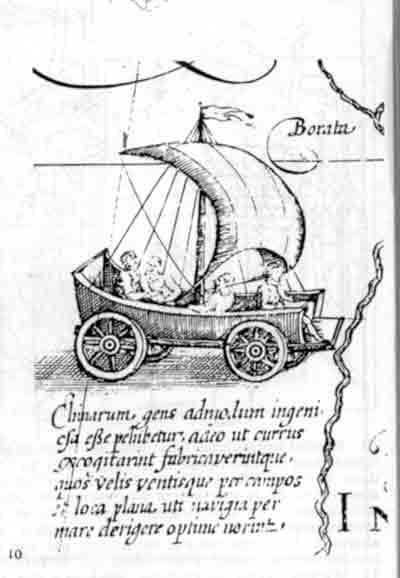 Borata
Chinarum, gens admodum ingeni,
osa esse perhibetur, adeo ut currus
excogitarint fabricaverintque,
quos velis ventisque per campos
et loca plana, uti navigia per
mare derigere optime norint.
IN
10